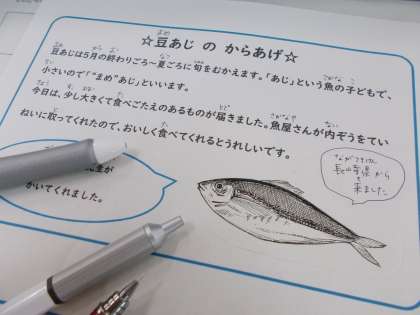 ☆豆あじ の からあげ☆
豆あじは5月の終わりごろ～夏ごろに旬をむかえます。「あじ」という魚の子どもで、
小さいので「“まめ”あじ」といいます。
今日は、少し大きくて食べごたえのあるものが届きました。魚屋さんが内ぞうをてい
ねいに取ってくれたので、おいしく食べてくれるとうれしいです。
長崎県から
来ました
かいてくれました。